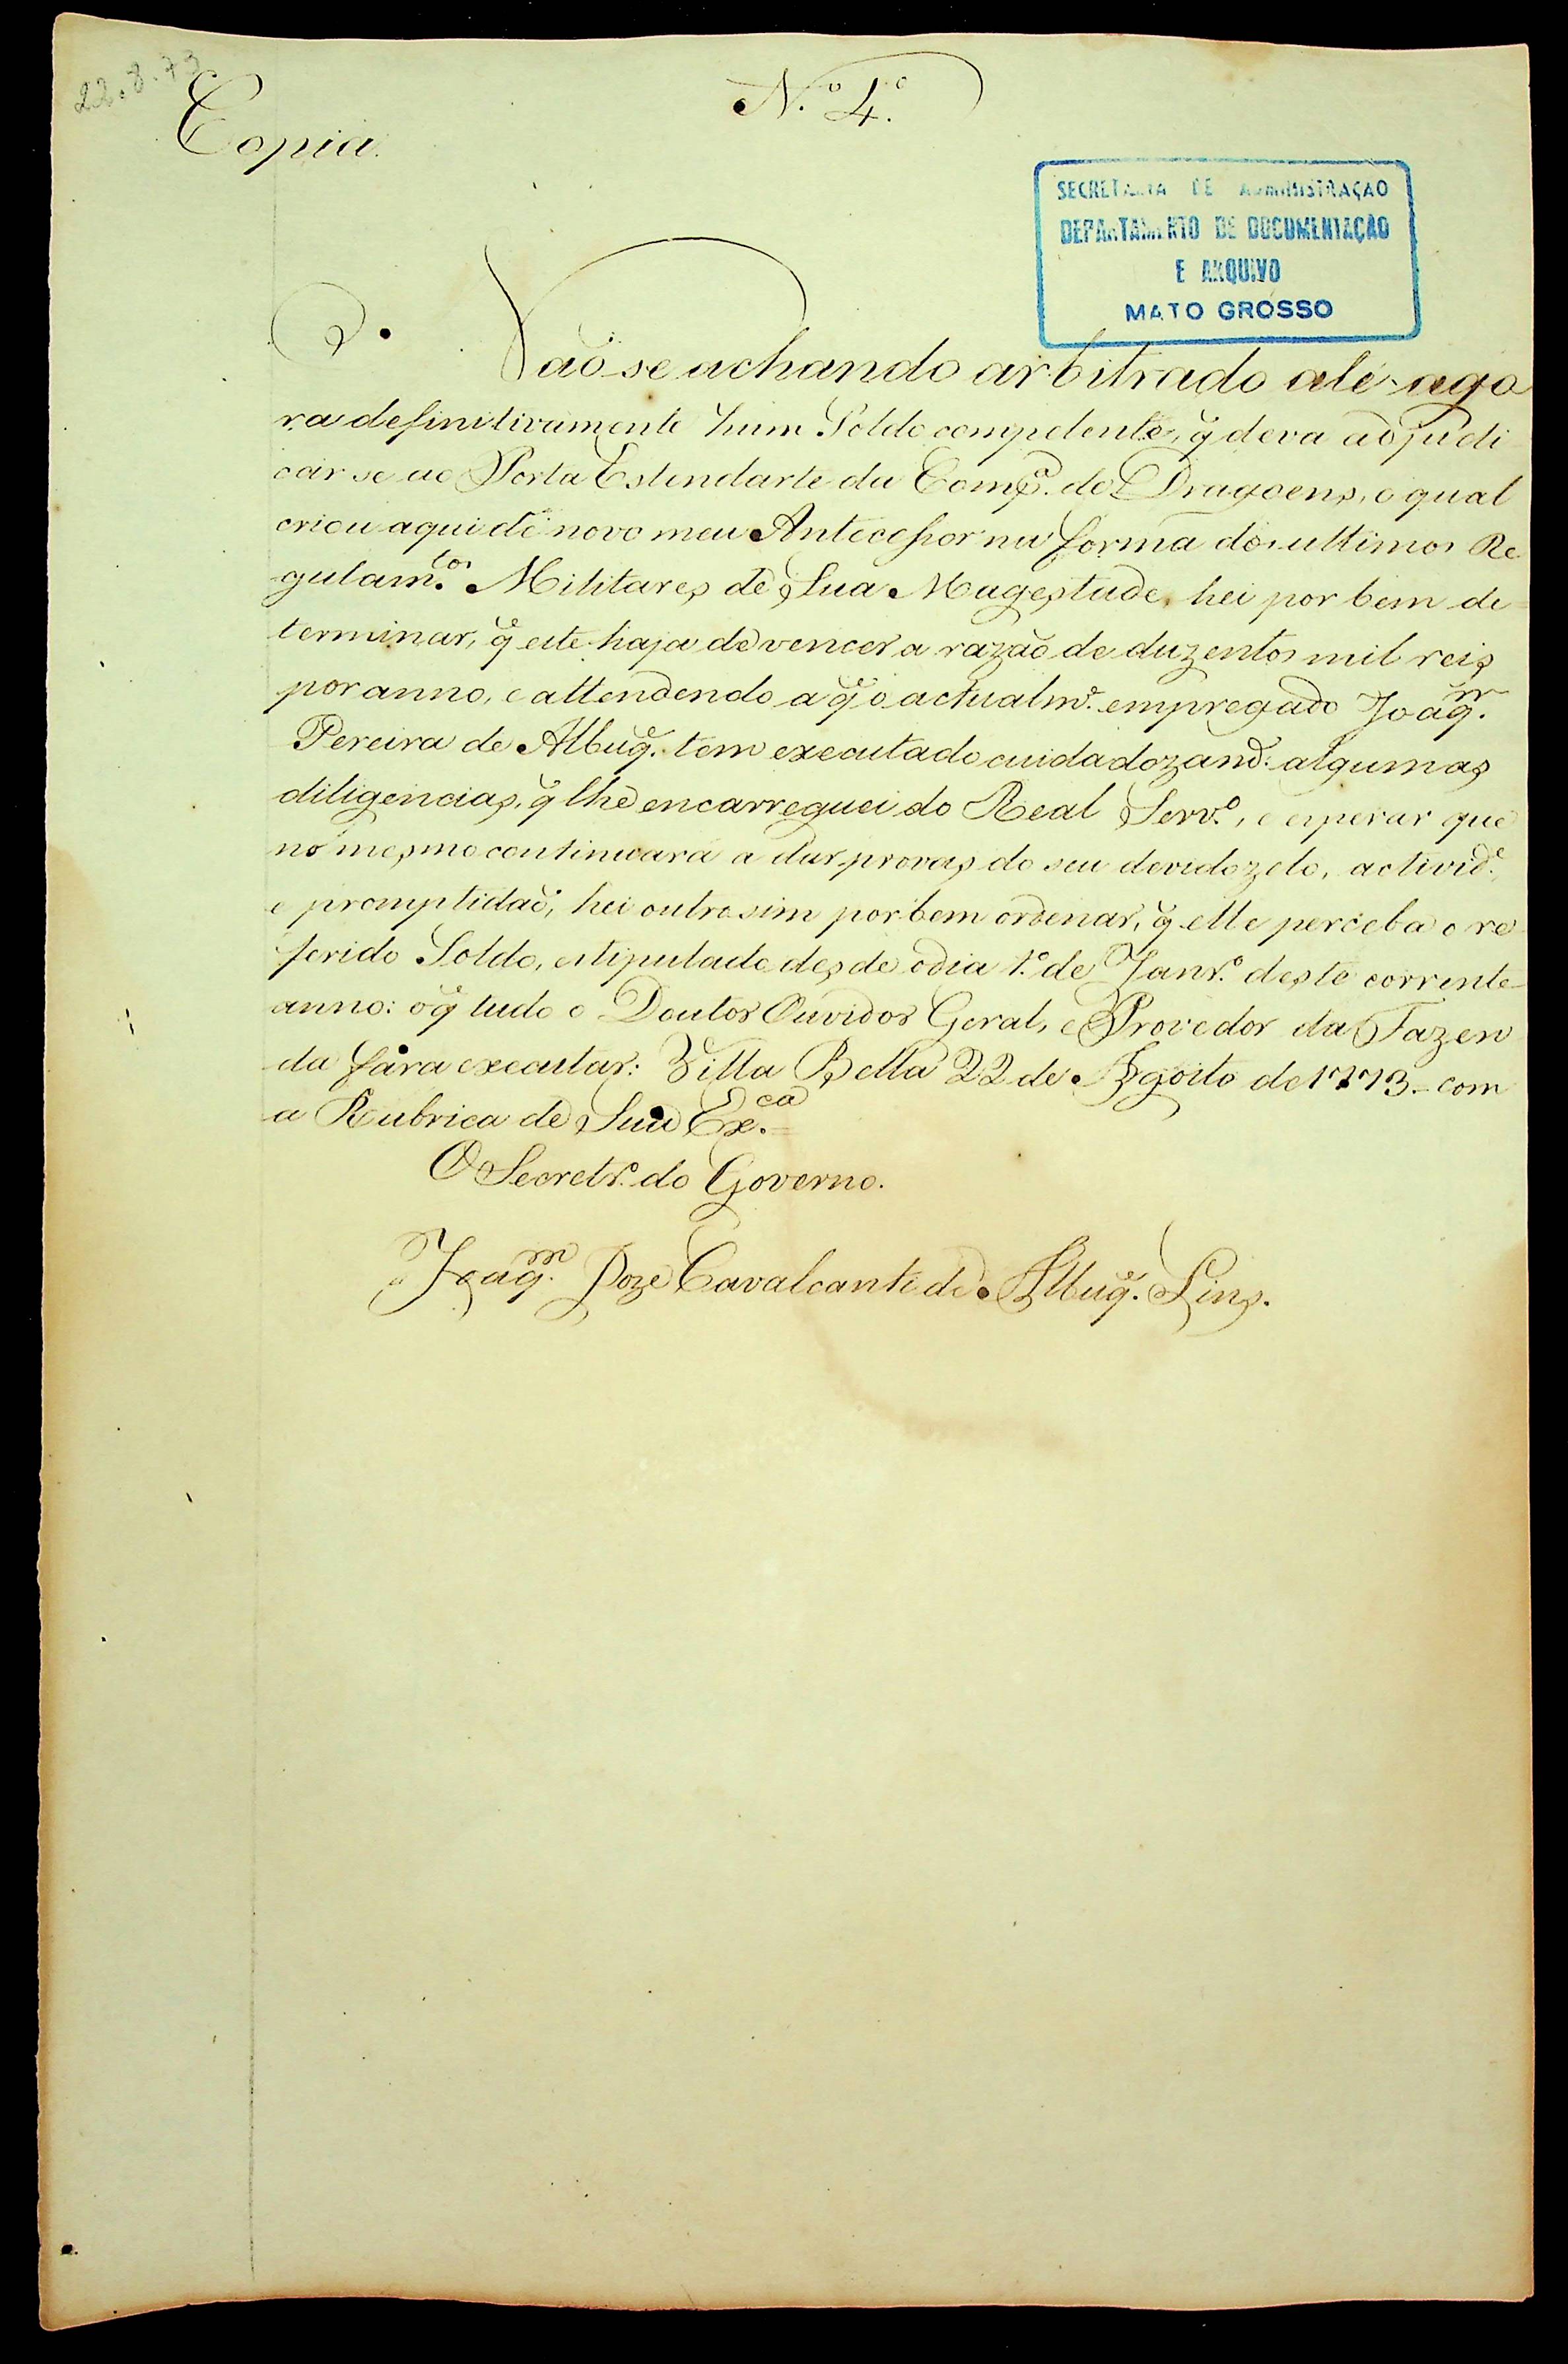 22.8.73
N.º 4.º
Copia.
SECRETARIA DE ADMINISTRAÇÃO
DEPARTAMENTO DE DOCUMENTAÇÃO
E ARQUIVO
MATO GROSSO
Naõ se achando arbitrado até ago
ra definitivamente hum Soldo competente, q̃ deva adjudi
car se ao Porta Estendarte da Comp.ª de Dragoens, o qual
criou aqui de novo meu Antecessor na forma dos ultimos Re
gulam.tos Militares de Sua Magestade, hei por bem de=
terminar, q̃ este haja de vencer a razaõ de duzentos mil reis
por anno, e attendendo a q̃ o actualm.e empregado Joaq.m
Pereira de Albuq.e tem executado cuidadozam.e algumas
diligencias, q̃ lhe encarreguei do Real Serv.º, e esperar que
no mesmo continuará a dar provas do seu devido zelo, activid.e,
e promptidaõ, hei outro sim por bem ordenar, q̃ elle perceba o re
ferido Soldo, estipulado desde o dia 1.º de Janr.º deste corrente
anno: o q̃ tudo o Doutor Ouvidor Geral, e Provedor da Fazen
da fara executar: Villa Bella 22 de Agosto de 1773 = com
a Rubrica de Sua Ex.ca =
O Secretr.º do Governo.
Joaq.m Joze Cavalcanti de Albuq.e Lins.